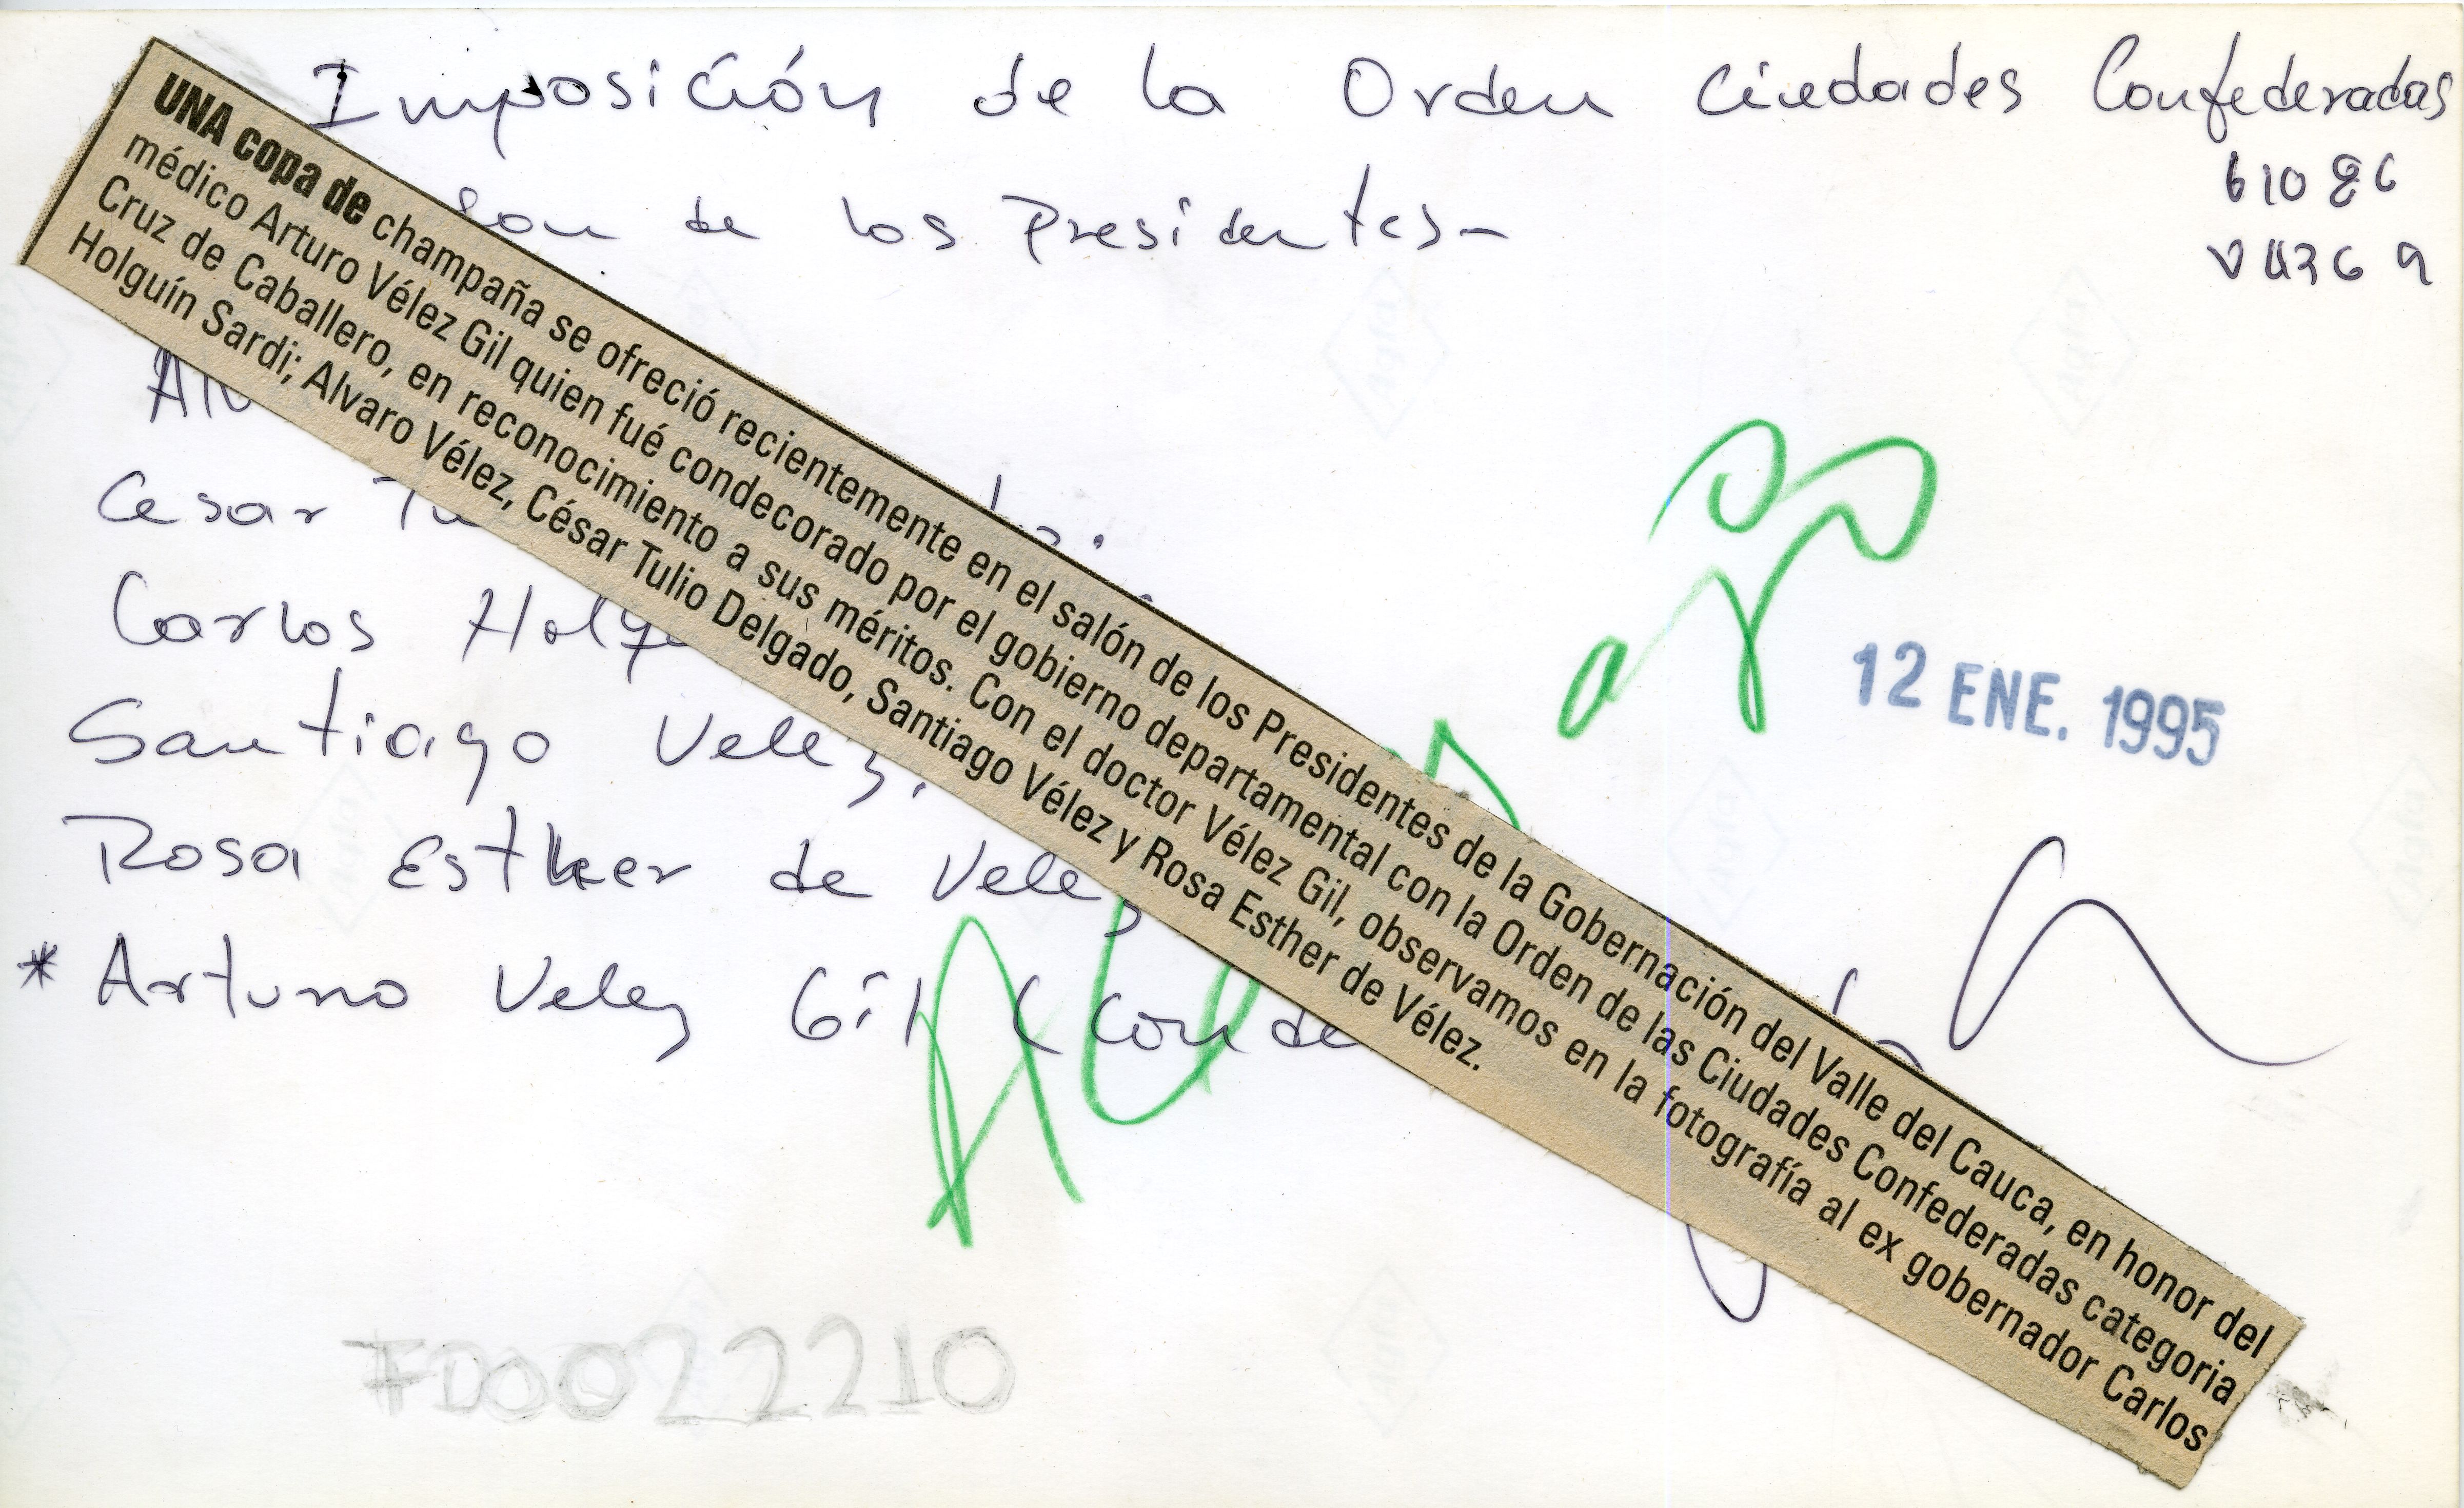 Imposición de la Orden Ciudades Confederadas
61086
son de los Presidentes-
UNA copa de champaña se ofreció recientemente en el salón de los Presidentes de la Gobernación del Valle del Cauca, en honor del
médico Arturo Vélez Gil quien fué condecorado por el gobierno departamental con la Orden de las Ciudades Confederadas categoria
Cruz de Caballero, en reconocimiento a sus méritos. Con el doctor Vélez Gil, observamos en la fotografía al ex gobernador Carlos
Holguín Sardi; Alvaro Vélez, César Tulio Delgado, Santiago Vélez y Rosa Esther de Vélez.
Cesar Tu
Carlos Holgu
12 ENE. 1995
Santiago Velez.
Rosa Esther de Velez
* Arturo Velez Gil (Conde
FD0022210